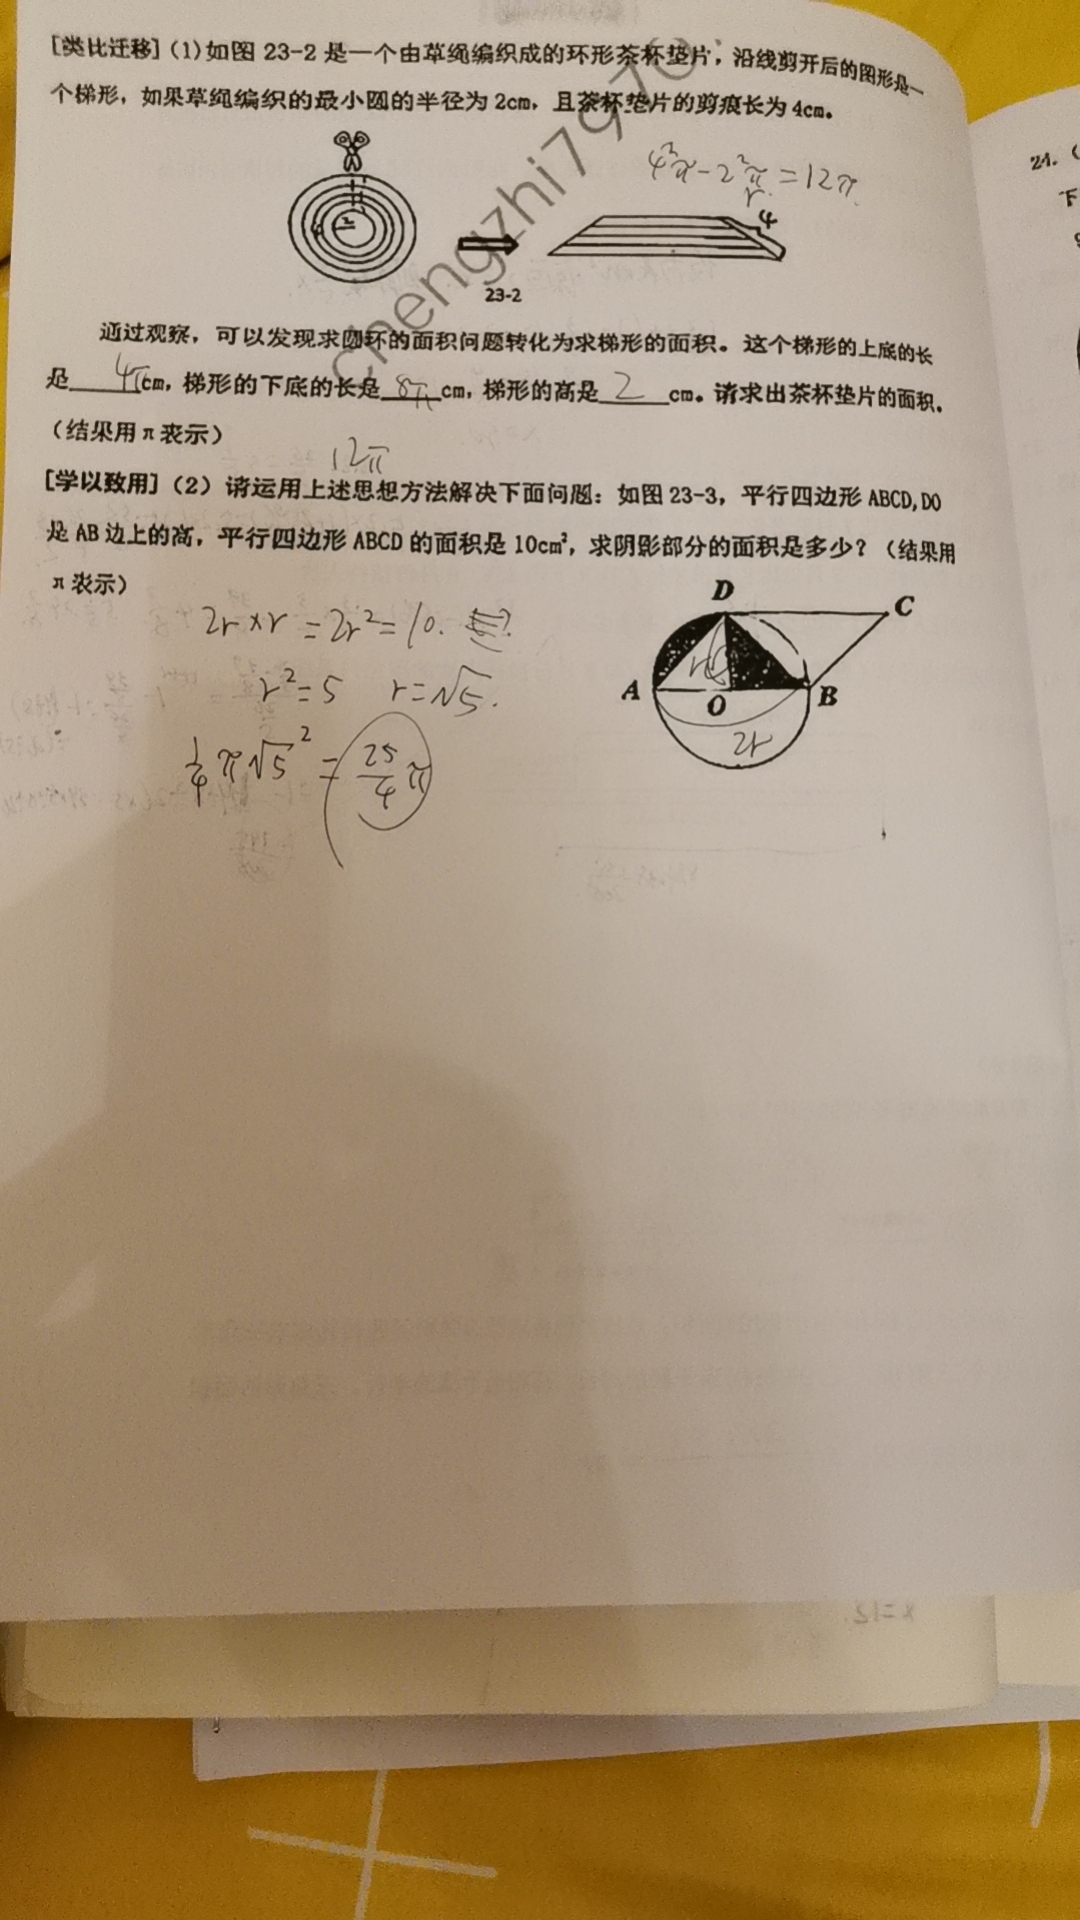 [类比迁移] (1)如图 23-2 是一个由草绳编织成的环形茶杯垫片，沿线剪开后的图形是一
个梯形，如果草绳编织的最小圆的半径为 2cm，且茶杯垫片的剪痕长为 4cm。
4²π-2²π=12π
r
2
4
23-2
chengzhi7976
通过观察，可以发现求圆环的面积问题转化为求梯形的面积。这个梯形的上底的长
是 4π cm，梯形的下底的长是 8π cm，梯形的高是 2 cm。请求出茶杯垫片的面积。
（结果用 π 表示）
12π
[学以致用]（2）请运用上述思想方法解决下面问题：如图 23-3，平行四边形 ABCD，DO
是 AB 边上的高，平行四边形 ABCD 的面积是 10cm²，求阴影部分的面积是多少？（结果用
π 表示）
2r×r=2r²=10.
r²=5 r=√5.
¼π√5²=25/4π
D
C
r
A
O
B
2r
21.
下
x=12.